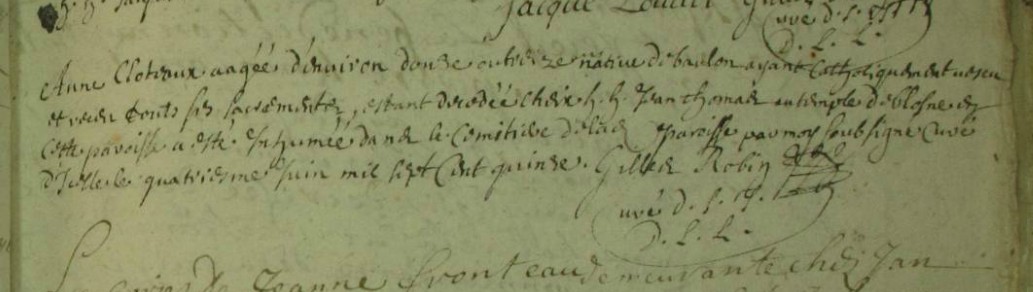 Jacque
uvé d. s. J.
D. L. L.
Anne Cloteaux aagéé d'enuiron douze outreize natiue debaulon ayant Catholiquement vescu
et receu touts ses sacrementz, estant decedéé cheix h. h. Jean thomas autemple deblosne en
cette paroisse a esté Inhuméé dans le Cemitiere de lad paroisse par moy soubsigné Curé
d'Icelle le quatriesme Juin mil sept Cent quinze. Gilles Robin
uvé d. s. J.
D. L. L.
de Jeanne fronteau demeurante chés Jan